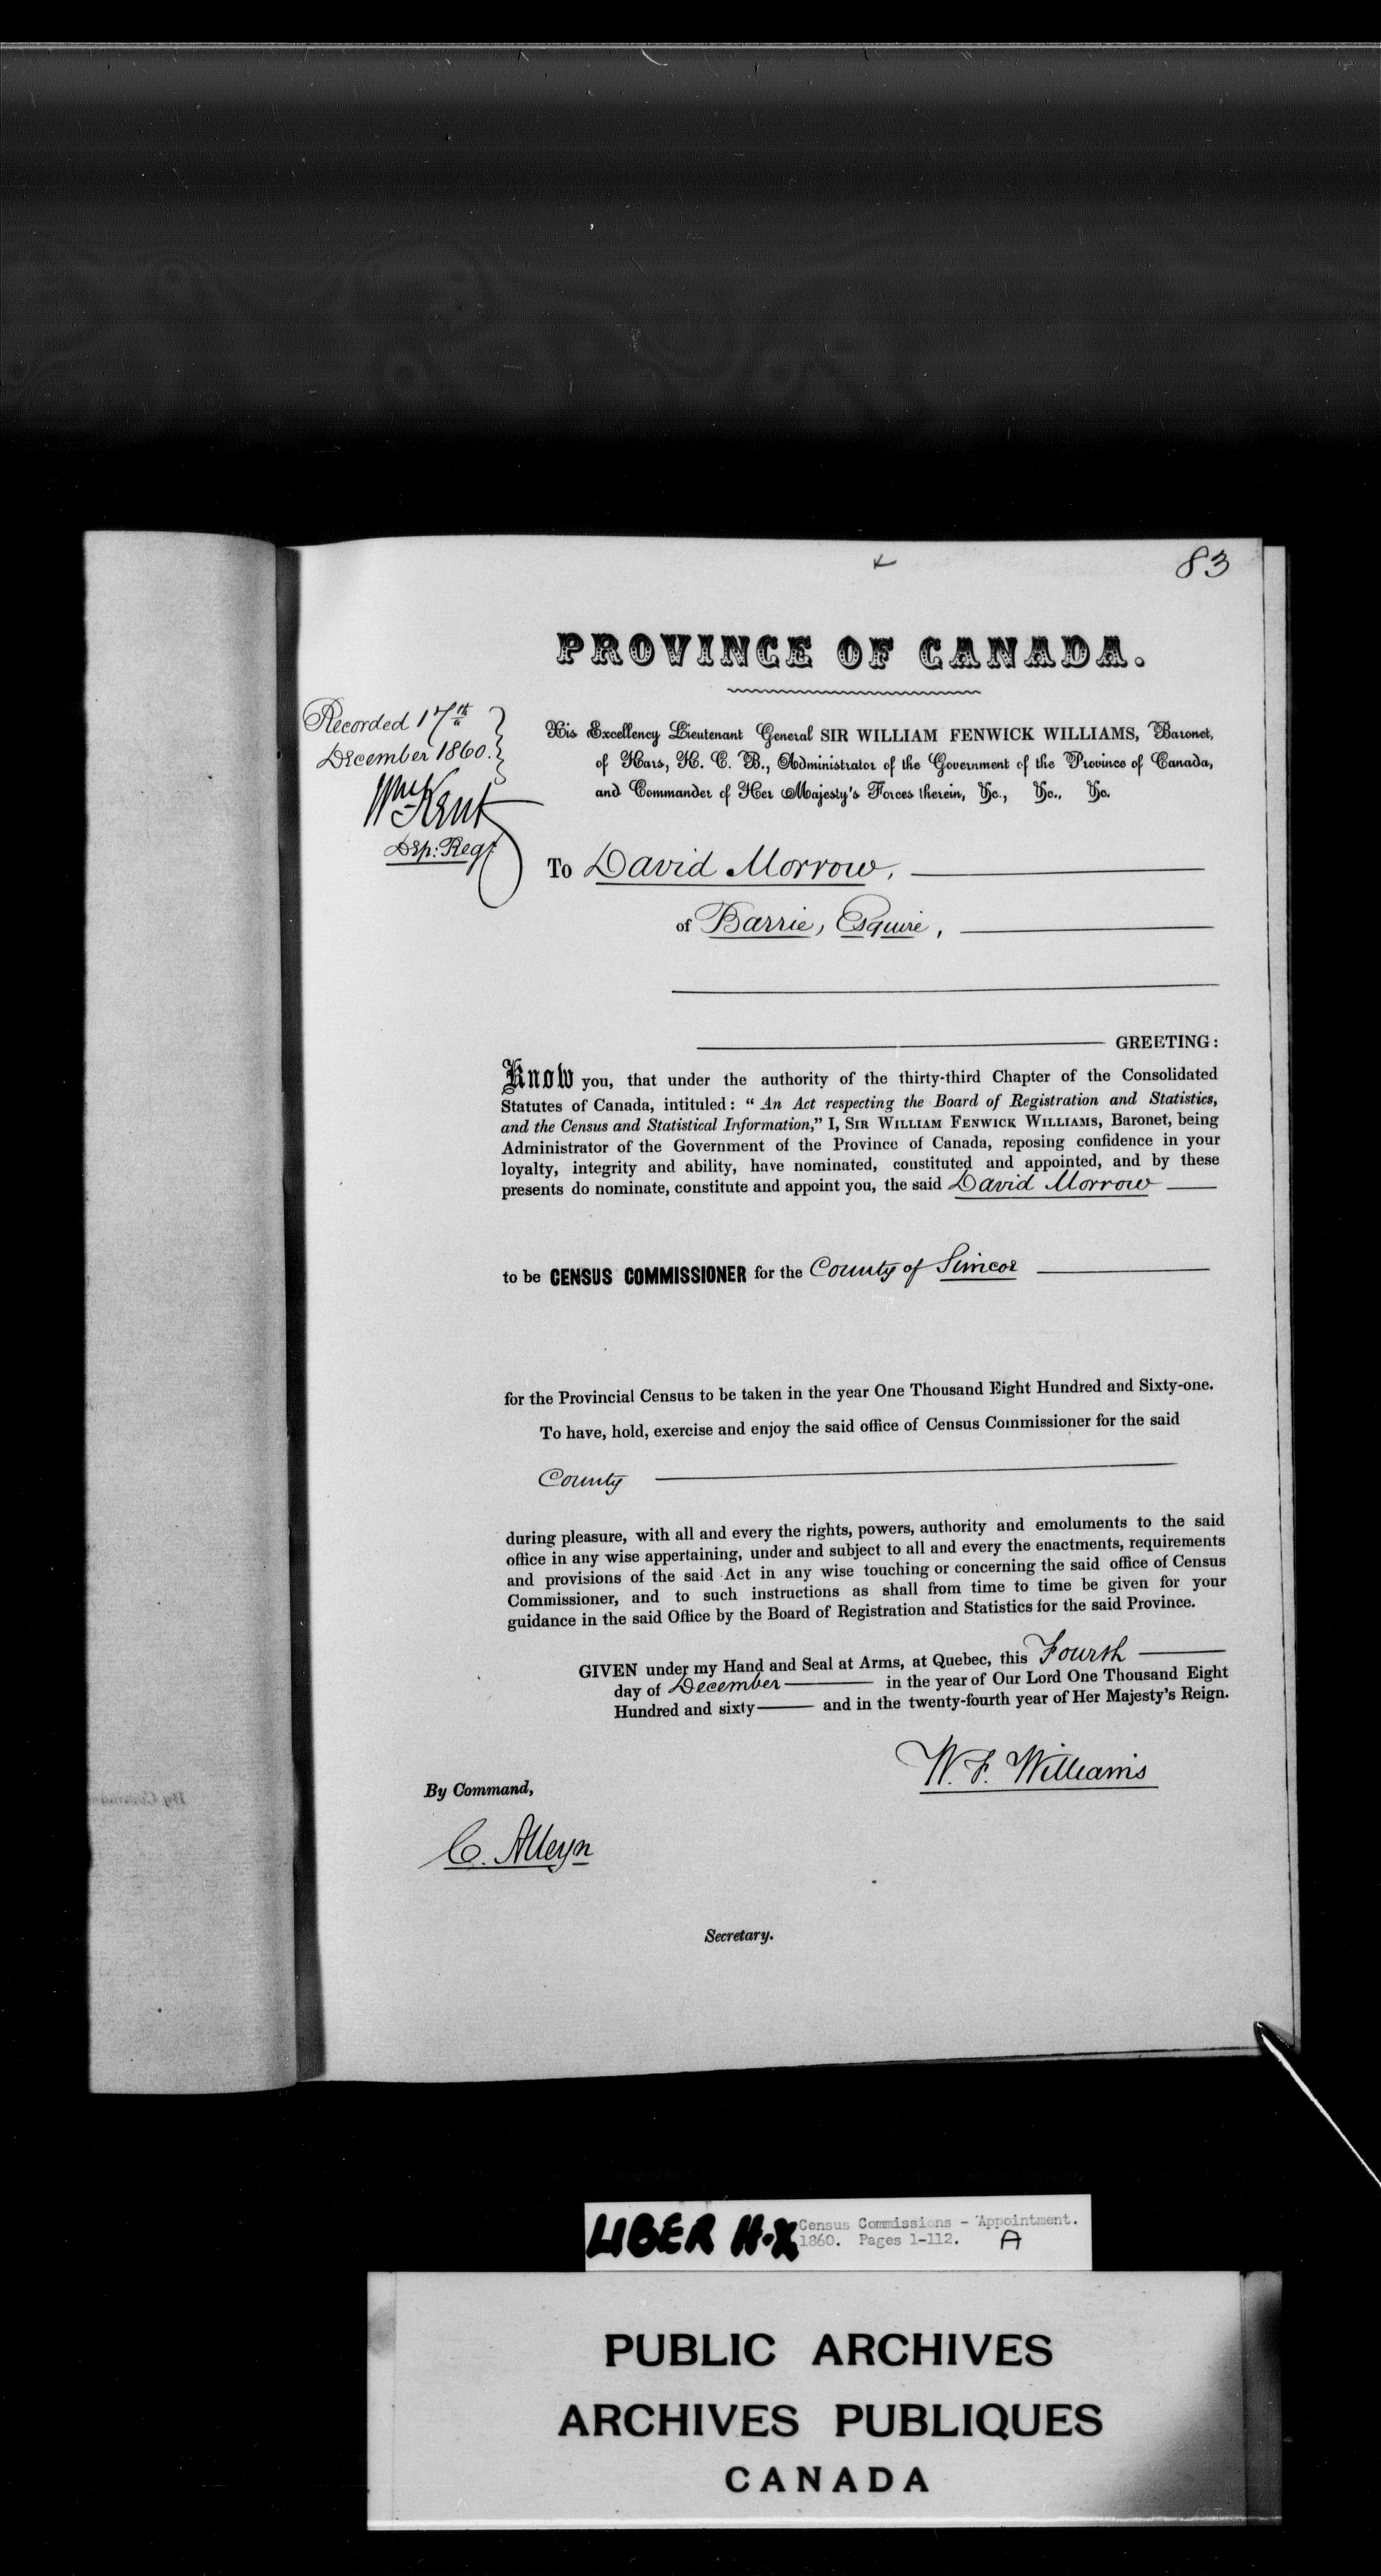 83
PROVINCE OF CANADA.
Recorded 17th
December 1860.
Wm Kent
Dep: Regr
His Excellency Lieutenant General SIR WILLIAM FENWICK WILLIAMS, Baronet,
of Kars, K. C. B., Administrator of the Government of the Province of Canada,
and Commander of Her Majesty's Forces therein, &c., &c., &c.
To David Morrow,
of Barrie, Esquire,
GREETING:
Know you, that under the authority of the thirty-third Chapter of the Consolidated
Statutes of Canada, intituled: “An Act respecting the Board of Registration and Statistics,
and the Census and Statistical Information,” I, SIR WILLIAM FENWICK WILLIAMS, Baronet, being
Administrator of the Government of the Province of Canada, reposing confidence in your
loyalty, integrity and ability, have nominated, constituted and appointed, and by these
presents do nominate, constitute and appoint you, the said David Morrow
to be CENSUS COMMISSIONER for the County of Simcoe
for the Provincial Census to be taken in the year One Thousand Eight Hundred and Sixty-one.
To have, hold, exercise and enjoy the said office of Census Commissioner for the said
County
during pleasure, with all and every the rights, powers, authority and emoluments to the said
office in any wise appertaining, under and subject to all and every the enactments, requirements
and provisions of the said Act in any wise touching or concerning the said office of Census
Commissioner, and to such instructions as shall from time to time be given for your
guidance in the said Office by the Board of Registration and Statistics for the said Province.
GIVEN under my Hand and Seal at Arms, at Quebec, this Fourth
day of December in the year of Our Lord One Thousand Eight
Hundred and sixty and in the twenty-fourth year of Her Majesty's Reign.
W. F. Williams
By Command,
C. Alleyn
Secretary.
LIBER H.X Census Commissions - Appointment.
1860. Pages 1-112. A
PUBLIC ARCHIVES
ARCHIVES PUBLIQUES
CANADA